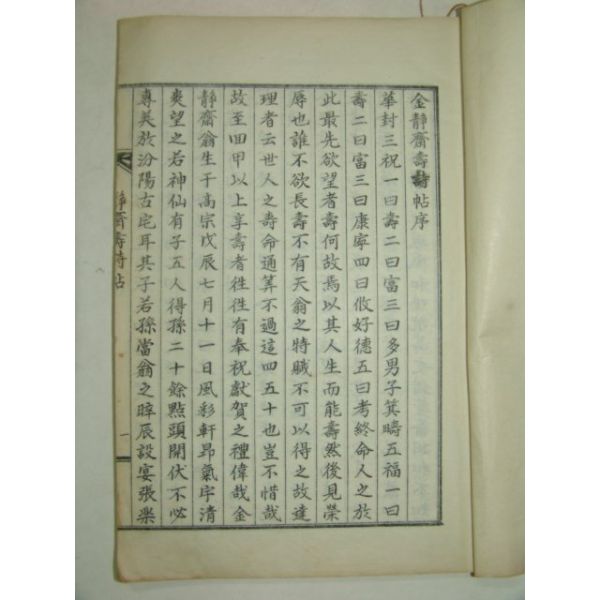 金靜齋壽詩帖序
華封三祝一曰壽二曰富三曰多男子箕疇五福一曰
壽二曰富三曰康寧四曰攸好德五曰考終命人之於
此最先欲望者壽何故焉以其人生而能壽然後見榮
辱也誰不欲長壽不有天翁之特賊不可以得之故達
理者云世人之壽命通筭不過這四五十也豈不惜哉
故至回甲以上享壽者徃徃有奉祝獻賀之禮偉哉金
靜齋翁生于高宗戊辰七月十一日風彩軒昂氣宇清
爽望之若神仙有子五人得孫二十餘點頭開伏不必
專美於汾陽古宅耳其子若孫當翁之晬辰設宴張樂
靜齋壽詩帖
一